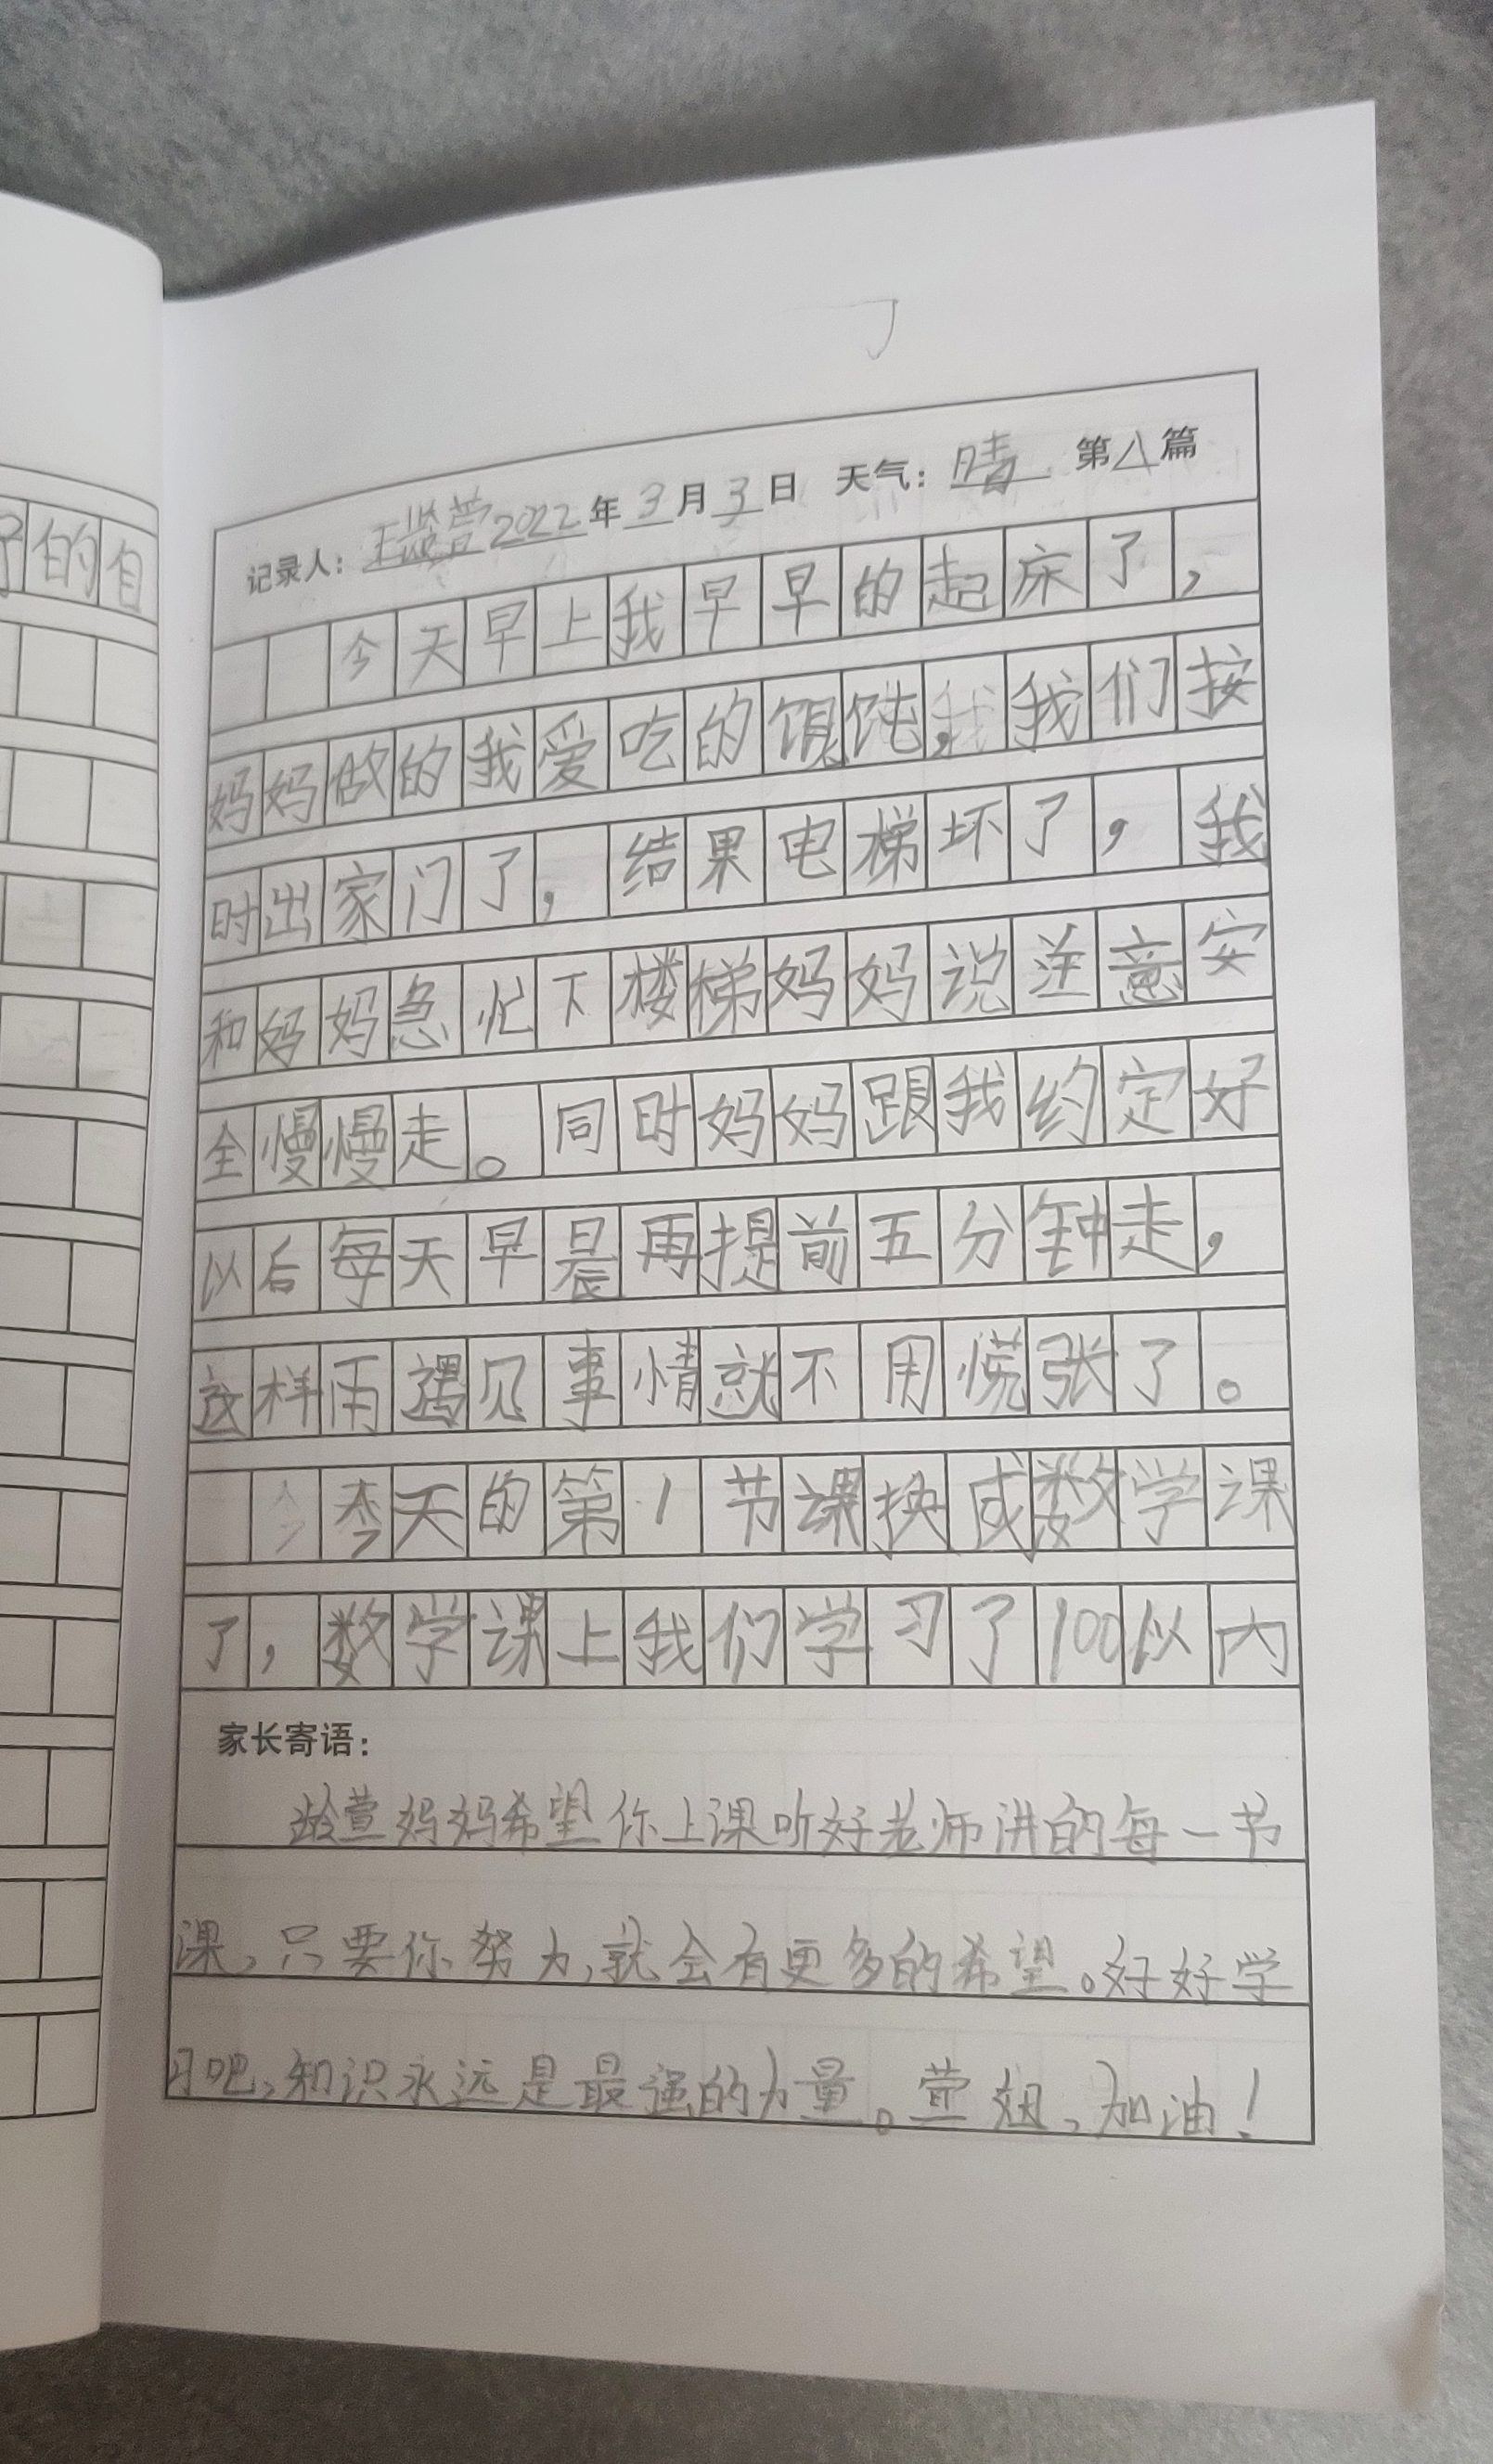 记录人：王 2022年3月3日 天气：晴 第八篇
今天早上我早早的起床了，
妈妈做的我爱吃的馄饨，我们按
时出家门了，结果电梯坏了，我
和妈妈急忙下楼梯妈妈说注意安
全慢慢走。同时妈妈跟我约定好
以后每天早晨再提前五分钟走，
这样再遇见事情就不用慌张了。
今天的第1节课换成数学课
了，数学课上我们学习了100以内
家长寄语：
萱妈妈希望你上课听好老师讲的每一节
课，只要你努力，就会有更多的希望。好好学
习吧，知识永远是最强的力量。萱妞、加油！
的自